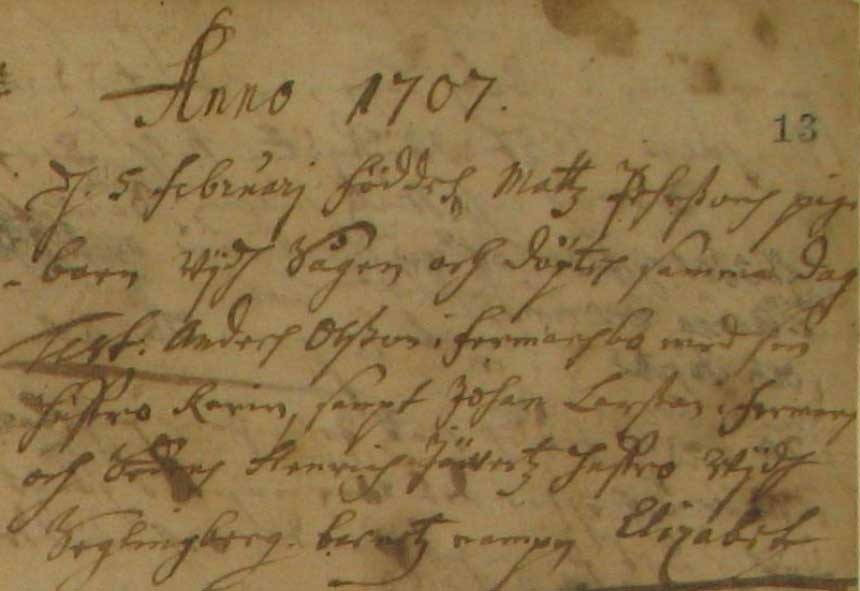 Anno 1707.
13
D. 5 Februarj föddes Mattz Pehrßons pige
barn widh Sågen och döptes samma dag
Test. Anders Olßon i Fermansbo med sin
hustro Karin, sampt Johan Larßon i Ferman
och Henrich hustro widh
Seglingberg. barnetz nampn Elizabet